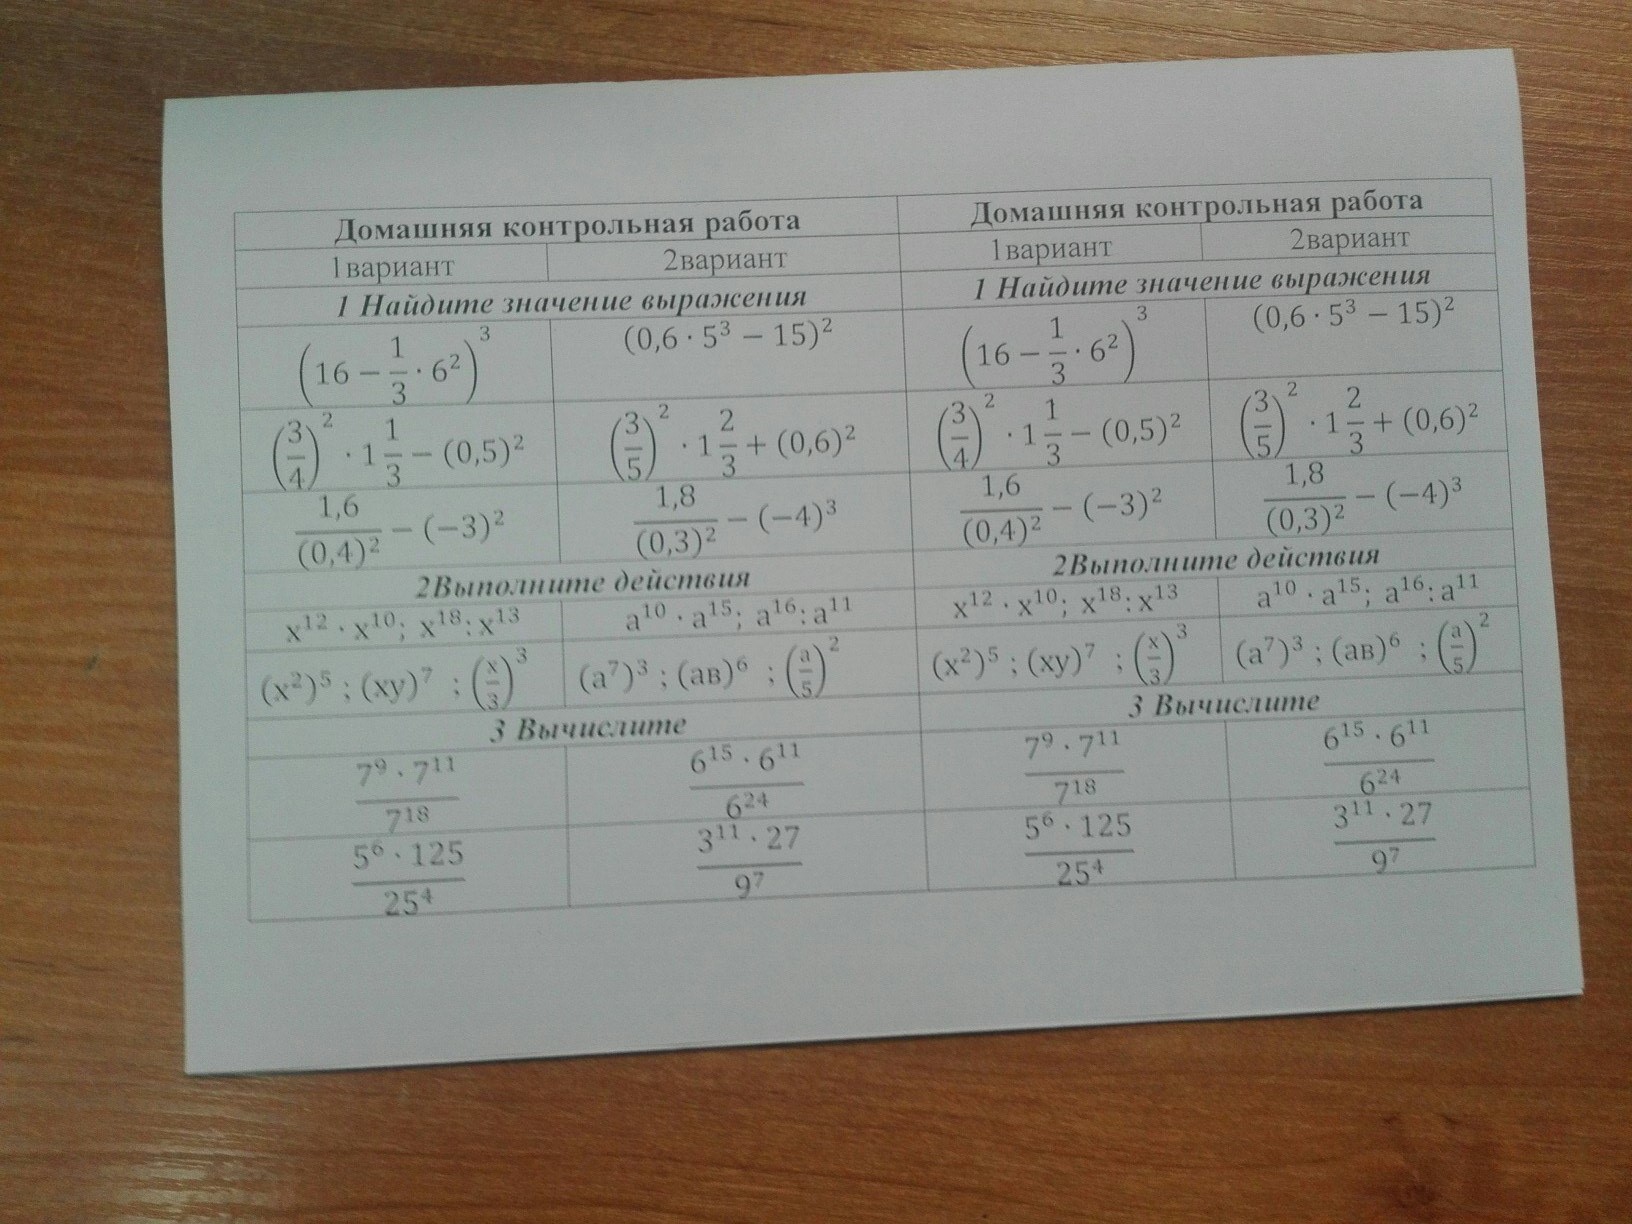 Домашняя контрольная работа
1вариант 2вариант
1 Найдите значение выражения
(16 − 1/3 · 6²)³ (0,6 · 5³ − 15)²
(3/4)² · 1 1/3 − (0,5)² (3/5)² · 1 2/3 + (0,6)²
1,6/(0,4)² − (−3)² 1,8/(0,3)² − (−4)³
2Выполните действия
x¹² · x¹⁰; x¹⁸: x¹³ a¹⁰ · a¹⁵; a¹⁶: a¹¹
(x²)⁵ ; (xy)⁷ ; (x/3)³ (a⁷)³ ; (ав)⁶ ; (a/5)²
3 Вычислите
7⁹ · 7¹¹/7¹⁸ 6¹⁵ · 6¹¹/6²⁴
5⁶ · 125/25⁴ 3¹¹ · 27/9⁷
Домашняя контрольная работа
1вариант 2вариант
1 Найдите значение выражения
(16 − 1/3 · 6²)³ (0,6 · 5³ − 15)²
(3/4)² · 1 1/3 − (0,5)² (3/5)² · 1 2/3 + (0,6)²
1,6/(0,4)² − (−3)² 1,8/(0,3)² − (−4)³
2Выполните действия
x¹² · x¹⁰; x¹⁸: x¹³ a¹⁰ · a¹⁵; a¹⁶: a¹¹
(x²)⁵ ; (xy)⁷ ; (x/3)³ (a⁷)³ ; (ав)⁶ ; (a/5)²
3 Вычислите
7⁹ · 7¹¹/7¹⁸ 6¹⁵ · 6¹¹/6²⁴
5⁶ · 125/25⁴ 3¹¹ · 27/9⁷